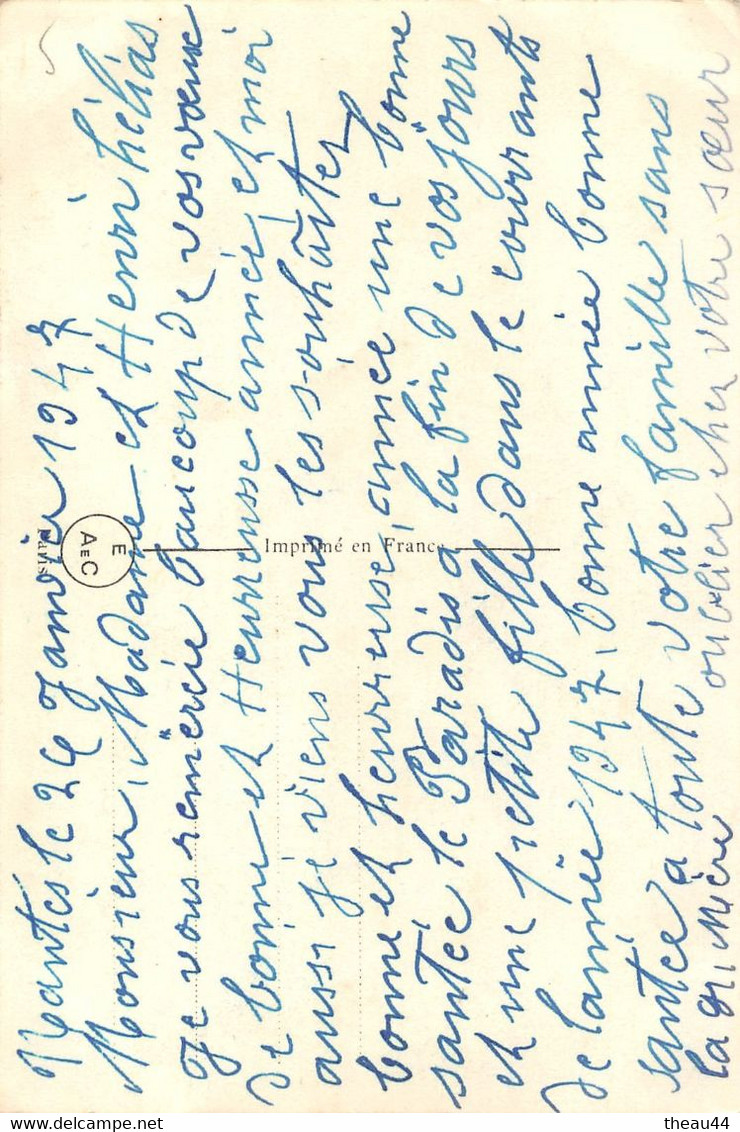 Nantes le 24 Janvie 1947
Monsieur, Madame et Henri hélias
Je vous remercie baucoup de vos vœux
de bonne et Heurreusse année et moi
aussi je viens vous les souhâiter
bonne et heurreuse, année une bonne
santée le Paradis a la fin de vos jours
et une petite fille dans le courrants
de lannée 1947, bonne année bonne
santée a toute votre famille sans
la Mère oublier chez votre sœur
E
AEC
Paris
Imprimé en France
theau44